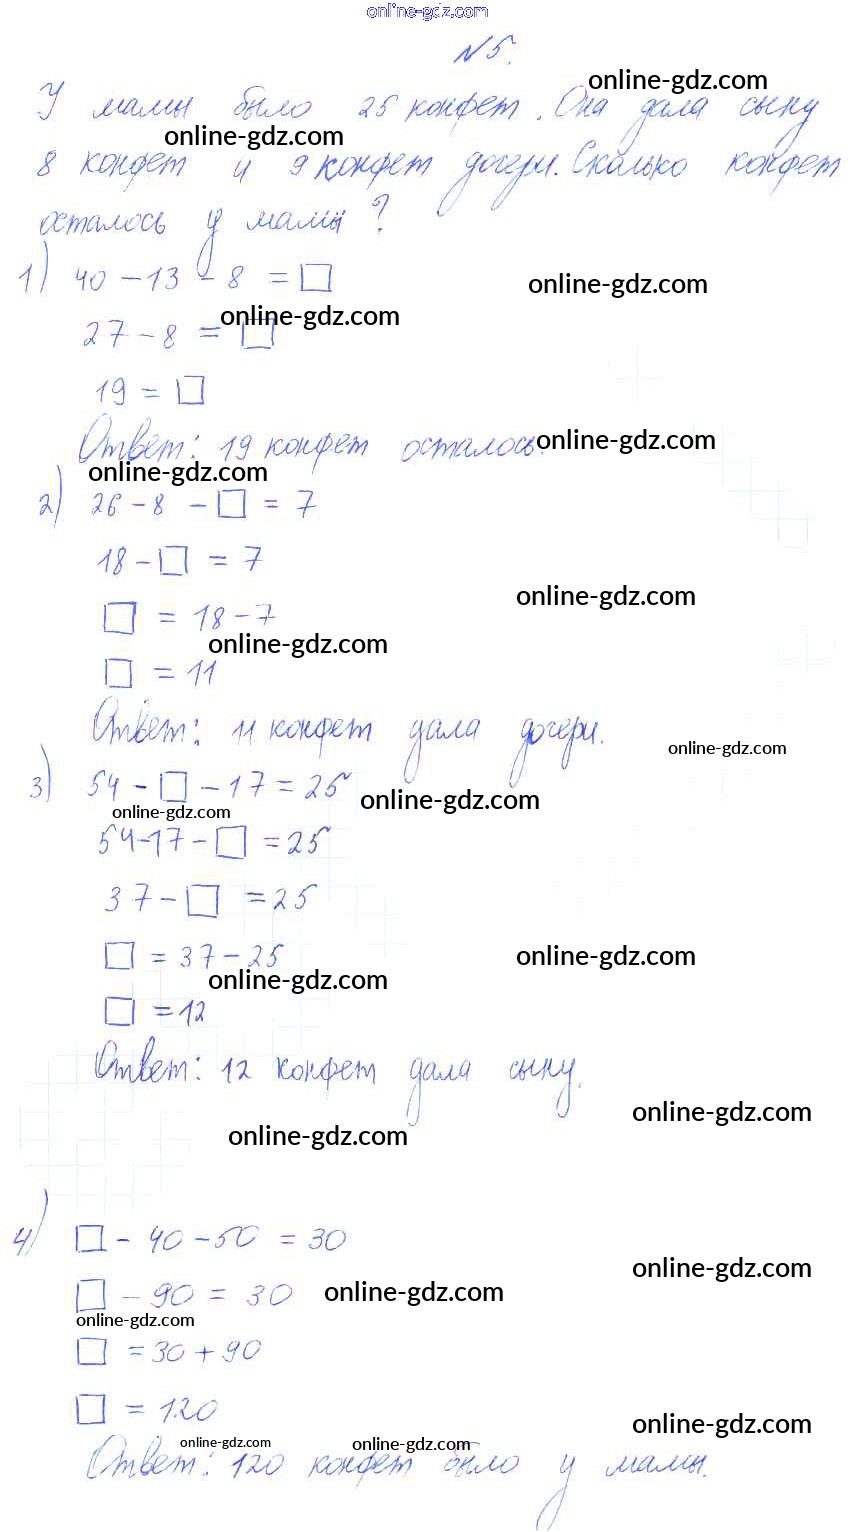 online-gdz.com
N5.
online-gdz.com
У мамы было 25 конфет. Она дала сыну
online-gdz.com
8 конфет и 9 конфет дочери. Сколько конфет
осталось у мамы?
1) 40 - 13 - 8 = □
online-gdz.com
online-gdz.com
27 - 8 = □
19 = □
Ответ: 19 конфет осталось.
online-gdz.com
online-gdz.com
2) 26 - 8 - □ = 7
18 - □ = 7
online-gdz.com
□ = 18 - 7
online-gdz.com
□ = 11
Ответ: 11 конфет дала дочери.
online-gdz.com
3) 54 - □ - 17 = 25
online-gdz.com
online-gdz.com
54 - 17 - □ = 25
37 - □ = 25
□ = 37 - 25
online-gdz.com
online-gdz.com
□ = 12
Ответ: 12 конфет дала сыну.
online-gdz.com
online-gdz.com
4) □ - 40 - 50 = 30
online-gdz.com
□ - 90 = 30
online-gdz.com
online-gdz.com
□ = 30 + 90
□ = 120
online-gdz.com
online-gdz.com
online-gdz.com
Ответ: 120 конфет было у мамы.